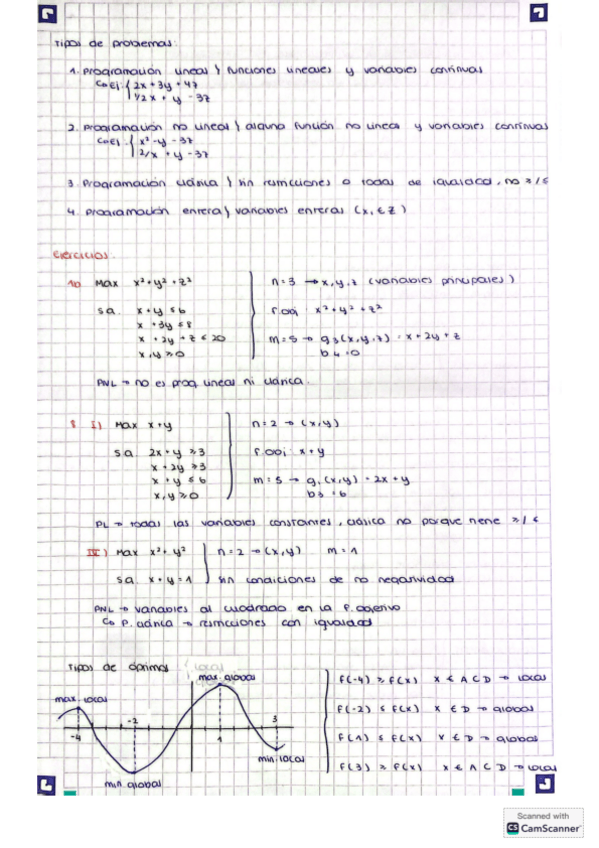 Tipos de problemas:
1. Programación lineal } funciones lineales y variables continuas
Co Ej: { 2x + 3y + 4z
1/2 x + y - 3z
2. Programación no lineal } alguna función no lineal y variables continuas
Co Ej: { x² - y - 3z
2/x + y - 3z
3. Programación clásica } sin restricciones o todas de igualdad, no ≥/≤
4. Programación entera } variables enteras (x, ∈ Z)
Ejercicios.
10 Max x² + y² + z² n = 3 → x, y, z (variables principales)
s.a. x + y ≤ 6 F. Obj: x² + y² + z²
x + 3y ≤ 8
x + 2y + z ≤ 20 m = 5 → g3 (x, y, z) = x + 2y + z
x, y ≥ 0 b4 = 0
PNL → no es prog. lineal ni clásica.
8 I) Max x + y n = 2 → (x, y)
s.a. 2x + y ≥ 3 F. Obj: x + y
x + 2y ≥ 3
x + y ≤ 6 m = 5 → g1 (x, y) = 2x + y
x, y ≥ 0 b3 = 6
PL → todas las variables constantes, clásica no porque tiene ≥/≤
III) Max x² + y² n = 2 → (x, y) m = 1
s.a. x + y = 1 sin condiciones de no negatividad
PNL → variables al cuadrado en la F. objetivo
Co P. clásica → restricciones con igualdad
Tipos de óptimos { local
global
max. local
max. global
-4
-2
1
3
min. global
min. local
F(-4) ≥ F(x) x ∈ A C D → local
F(-2) ≤ F(x) x ∈ D → global
F(1) ≤ F(x) x ∈ D → global
F(3) ≥ F(x) x ∈ A C D → local
Scanned with
CS CamScanner